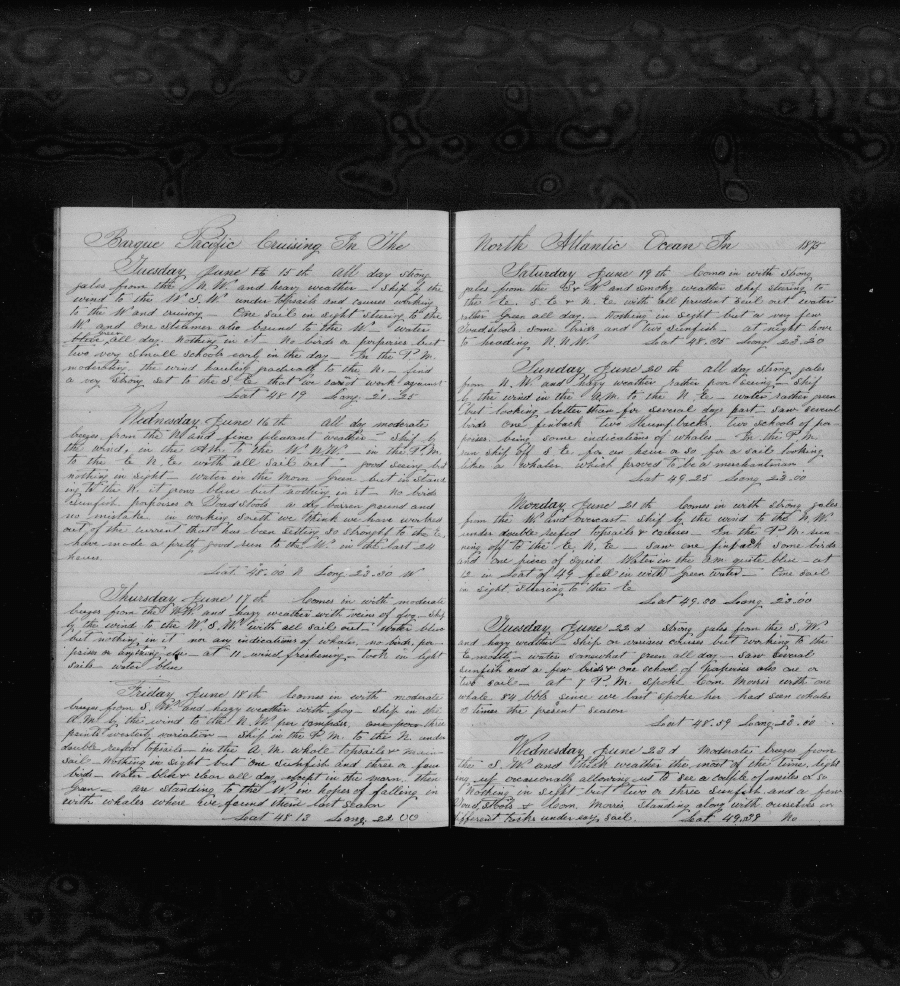 Barque Pacific Cruising In The
Tuesday June 15th All day strong
gales from the N.W and heavy weather - Ship by the
wind to the W S.W under topsails and courses working
to the W and cruising - One sail in sight steering to the
W and one steamer also bound to the W - water
green
blue all day. Nothing in it - No birds or porpoises but
two very small schools early in the day - In the P.M.
moderating the wind hauling gradually to the N. - find
a very strong set to the S E that we cannot work against
Lat 48 19 Long. 21.25
Wednesday June 16th All day moderate
breezes from the N and fine pleasant weather - Ship by
the wind, in the AM. to the W. N.W. - in the P.M.
to the E N.E. with all sail out - good seeing but
nothing in sight - water in the morn green but in stand
ing to the N. it grows blue but nothing in it - No birds
Sunfish porpoises or Toadstools a dry barren ground and
no mistake in working South we think we have worked
out of the current that has been setting so strought to the E.
have made a pretty good run to the W in the last 24
hours
Lat. 48.00 N Long 23.30 W
Thursday June 17th Comes in with moderate
breezes from the W.W. and hazy weather with veins of fog - Ship
by the wind to the W S.W. with all sail out - water blue
but nothing in it nor any indications of whales, no birds, por
poises or anything else - at 11. wind freshening. took in light
sails water blue
Friday June 18th Comes in with moderate
breezes from S. W. and hazy weather with fog - Ship in the
A.M by the wind to the N. W. per compass, three
points westerly variation - Ship in the P.M. to the N under
double reefed topsails - in the A M whole topsails & main
sail - Nothing in sight but one Sunfish and three or four
birds - Water blue & clear all day except in the morn, then
green - are standing to the W in hopes of falling in
with whales where we found them last season
Lat 48 13 Long. 22 00
North Atlantic Ocean In 1875
Saturday June 19th Comes in with strong
gales from the and smoky weather ship steering to
the E, S. E & N. E with all prudent sail out water
rather green all day - Nothing in sight but a very few
Toadstools some birds and two sunfish - at night hove
to heading N.N.W. Lat 48.05 Long 23.20
Sunday June 20th all day strong gales
from N.W. and hazy weather rather poor seeing - Ship
by the wind in the A.M. to the N E - water rather green
but looking better than for several days part - saw several
birds one finback two Humpbacks two schools of por
poises, being some indications of whales - In the P.M.
ran ship off S E for an hour or so for a sail looking
like a whaler which proved to be a merchantman
Lat 49.25 Long 23.00
Monday June 21th Comes in with strong gales
from the W and overcast - Ship by the wind to the N.W.
under double reefed topsails & courses - In the P.M. run
ning off to the E. N. E - saw one finback some birds
and one piece of squid Water in the am quite blue - at
12 in Lat of 49 fell in with green water - One sail
in sight Steering to the E
Lat 49.50 Long 23.00
Tuesday June 22d Strong gales from the S. W.
and hazy weather Ship on various courses but working to the
E. mostly - water somewhat green all day - saw several
sunfish and a few birds & one school of porpoises also one or
two sail - at 7 P.M. spoke Com Morris with one
whale 84 bbls since we last spoke her had seen whales
3 times the present season
Lat 48.59 Long 20.00
Wednesday June 23d Moderate breezes from
the S. W and thick weather the most of the time, light
ing up occasionally allowing us to see a couple of miles or so
Nothing in sight but two or three sunfish and a few
Toad Stools & Com. Morris Standing along with ourselves on
different tacks under easy sail. Lat. 49.39 No